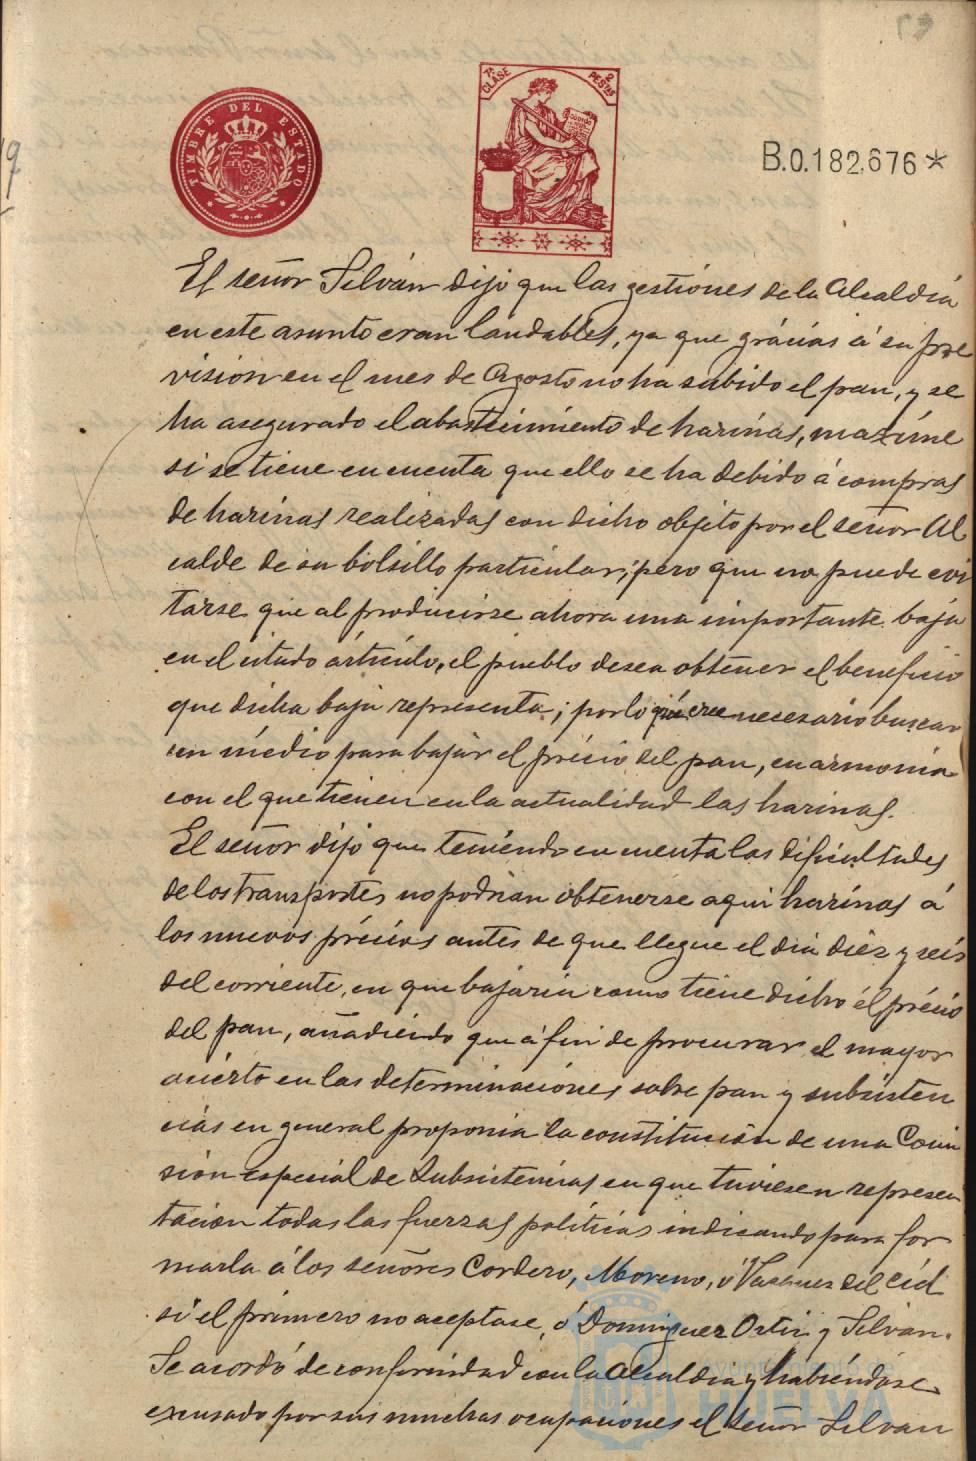 TIMBRE DEL ESTADO
7ª CLASE
2 PESTAS
B.0.182.676*
El señor Silván dijo que las gestiones de la Alcaldia
en este asunto eran laudables, ya que grácias á su pre
visión en el mes de Agosto no ha subido el pan, y se
ha asegurado el abastecimiento de harinas, maxíme
si se tiene en cuenta que ello se ha debido á compras
de harinas realizadas con dicho objeto por el señor Al
calde de su bolsillo particular; pero que no puede evi
tarse que al producirse ahora una importante baja
en el citado artículo, el pueblo desea obtener el beneficio
que dicha baja representa; por lo que cree necesario buscar
un medio para bajar el précio del pan, en armonia
con el que tienen en la actualidad las harinas.
El señor dijo que teniendo en cuenta las dificultades
de los transportes no podrian obtenerse aqui harinas á
los nuevos précios antes de que llegue el dia diéz y seis
del corriente, en que bajaria como tiene dicho él précio
del pan, añadiendo que á fin de procurar el mayor
aciérto en las determinaciónes sobre pan y subsisten
cias en general proponia la constitución de una Comi
sión especial de Subsistencias en que tuviesen represen
tación todas las fuerzas políticas indicando para for
marla á los señores Cordero, Moreno, ó Vazquez del Cid
si el primero no aceptase, ó Dominguez Ortiz y Silván.
Se acordó de conformidad con la Alcaldia y habiéndose
excusado por sus muchas ocupaciónes el señor Silvan
Ayuntamiento de
HUELVA